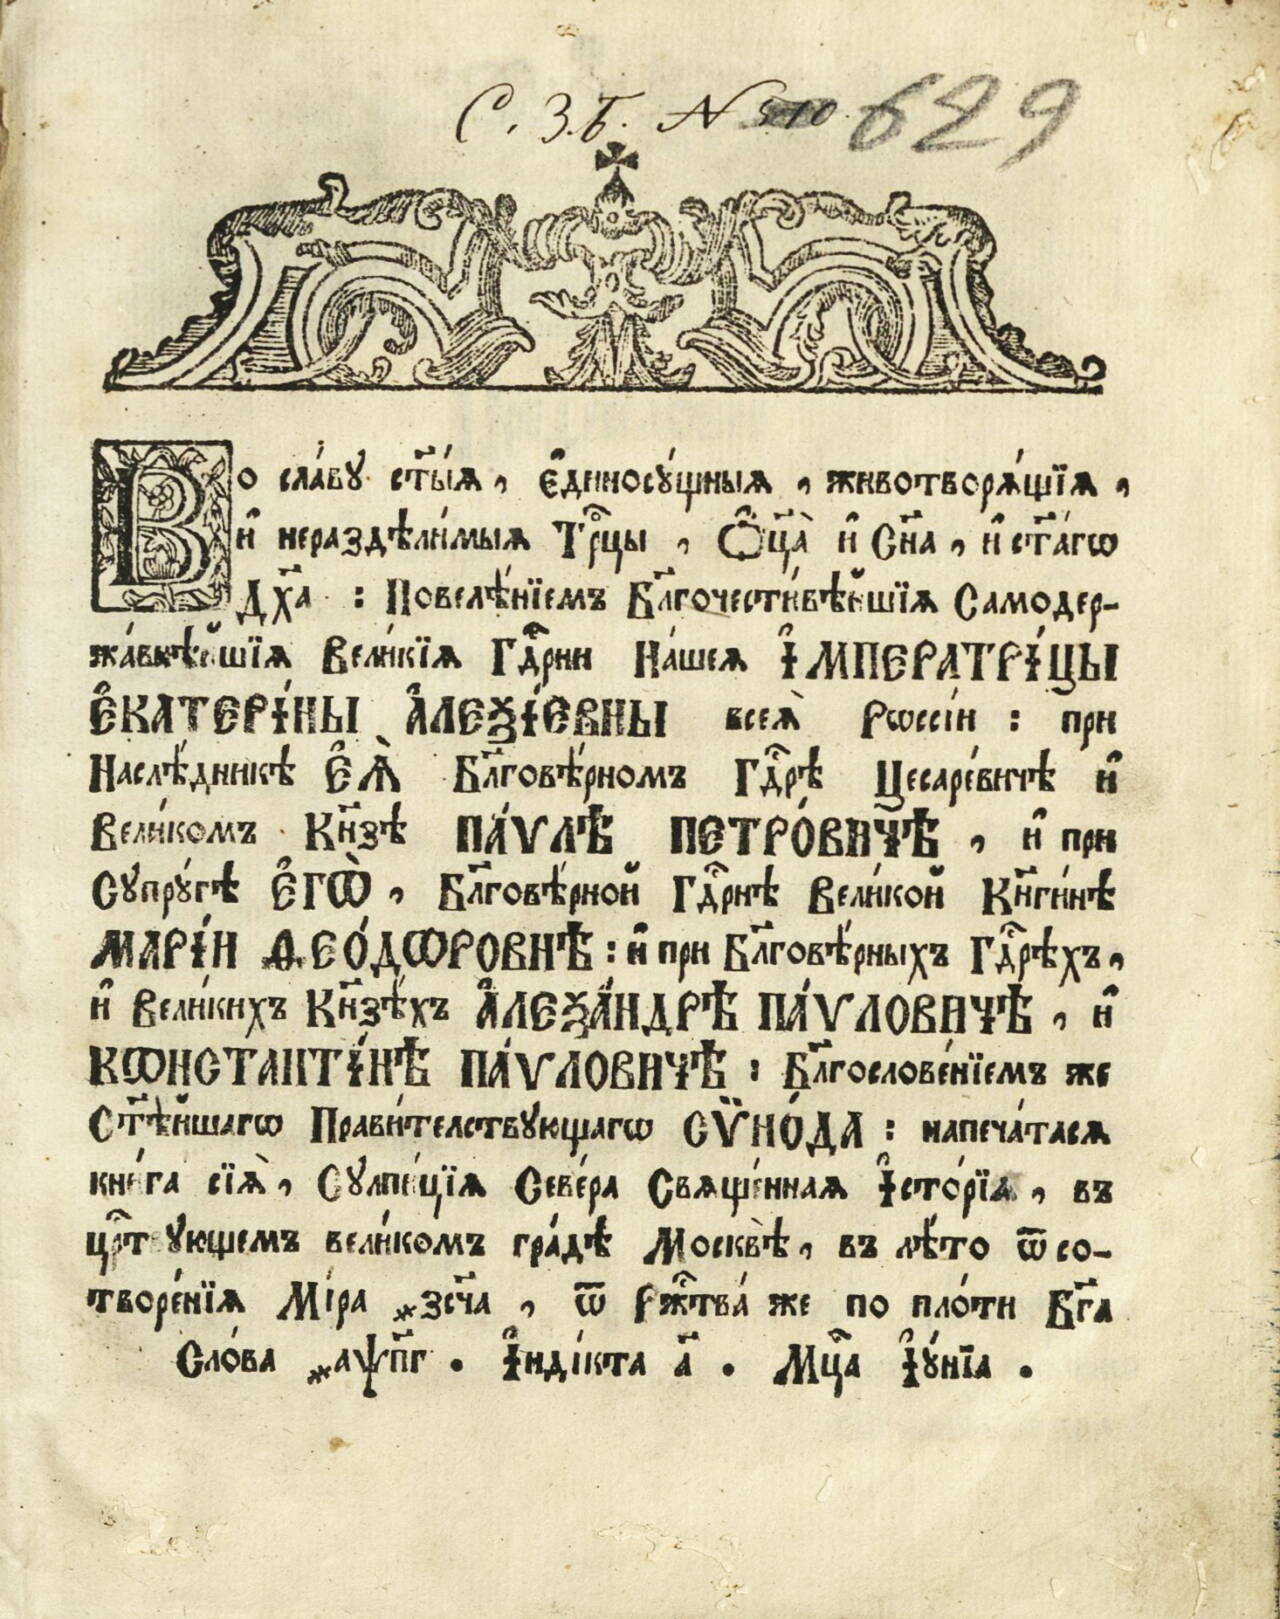 С. З. Б. № 629
Во сла́вꙋ ст҃ы́ѧ, є҆динносꙋ́щныѧ, животворѧ́щїѧ,
и҆ нераздѣли́мыѧ Трⷪ҇цы, Ѻ҆ц҃а̀ и҆ Сн҃а, и҆ ст҃а́гѡ
Дх҃а : Повелѣ́нїемъ Бл҃гочести́вѣйшїѧ Самодер-
жа́внѣйшїѧ Вели́кїѧ Гдⷭ҇рни На́шеѧ І҆МПЕРАТРІ́ЦЫ
Є҆КАТЕРІ́НЫ А҆ЛЕѮІ́ЕВНЫ всеѧ̀ Рѡссі́и : при
Наслѣ́дникѣ Є҆Ѧ̀ Бл҃говѣ́рномъ Гдⷭ҇рѣ Цесаре́вичѣ и҆
Вели́комъ Кн҃зѣ ПА́ѴЛѢ ПЕТРО́ВИЧѢ, и҆ при
Сꙋпрꙋ́гѣ Є҆ГѠ̀, Бл҃говѣ́рной Гдⷭ҇рнѣ Вели́кой Кн҃ги́нѣ
МАРІ́И Ѳ҆ЕО́ДѠРОВНѢ : и҆ при Бл҃говѣ́рныхъ Гдⷭ҇рѣхъ,
и҆ Вели́кихъ Кн҃зѣхъ А҆ЛЕѮА́НДРѢ ПА́ѴЛОВИЧѢ, и҆
КѠНСТАНТІ́НѢ ПА́ѴЛОВИЧѢ : Бл҃гослове́нїемъ же
Ст҃ѣ́йшагѡ Прави́телствꙋющагѡ СѴ҆НО́ДА : напеча́тасѧ
кни́га сїѧ̀, Сꙋлпи́цїѧ Севе́ра Свѧще́ннаѧ І҆сто́рїѧ, въ
црⷭ҇твꙋющемъ вели́комъ гра́дѣ Москвѣ̀, въ лѣ́то ѿ со-
творе́нїѧ Мі́ра ҂зсч҃а, ѿ Ржⷭ҇тва́ же по пло́ти Бг҃а
Сло́ва ҂аѱп҃г . І҆нді́кта а҃ . Мцⷭ҇а І҆ꙋ́нїа .